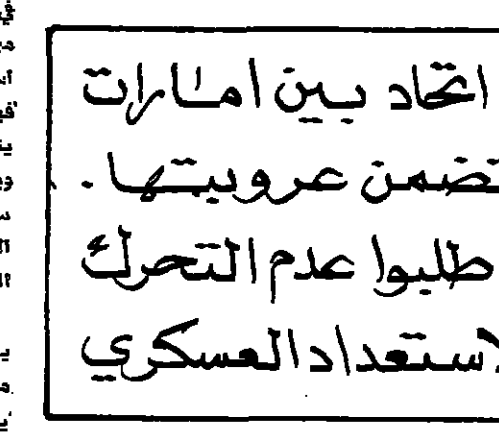 اتحاد بين امارات
تضمن عروبيتها .
طلبوا عدم التحرك
الاستعداد العسكري